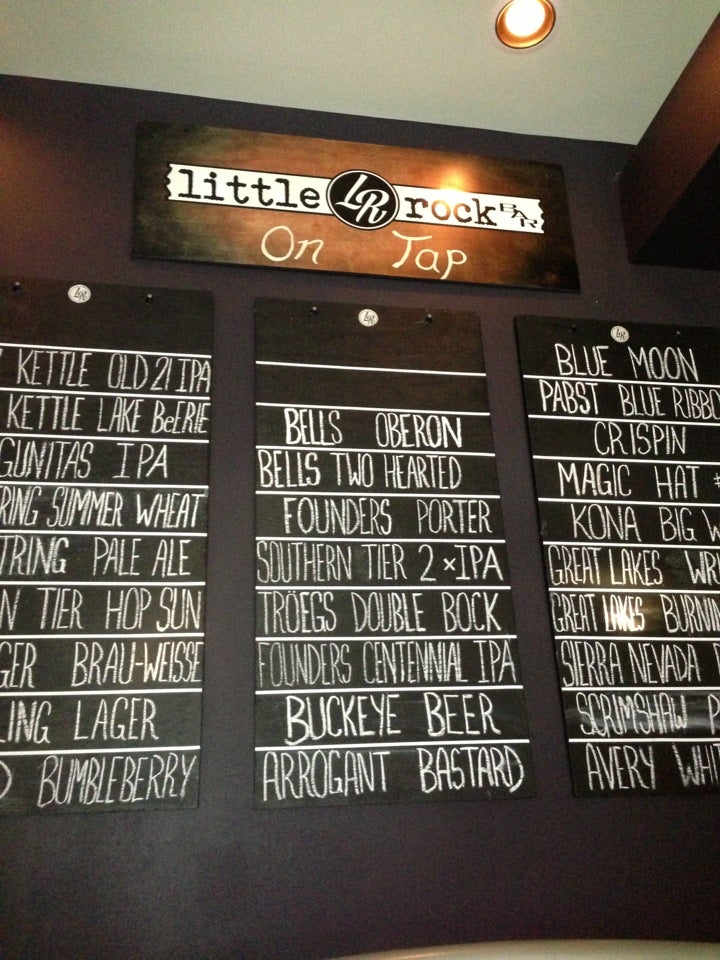 little LR rock BAR
On Tap
LR
KETTLE OLD 21 IPA
KETTLE LAKE BeERIE
GUNITAS IPA
RING SUMMER WHEAT
TRING PALE ALE
N TIER HOP SUN
GER BRAU-WEISSE
LING LAGER
D BUMBLEBERRY
LR
BELLS OBERON
BELLS TWO HEARTED
FOUNDERS PORTER
SOUTHERN TIER 2×IPA
TRÖEGS DOUBLE BOCK
FOUNDERS CENTENNIAL IPA
BUCKEYE BEER
ARROGANT BASTARD
LR
BLUE MOON
PABST BLUE RIBBO
CRISPIN
MAGIC HAT #
KONA BIG W
GREAT LAKES WRI
GREAT LAKES BURNIN
SIERRA NEVADA P
SCRIMSHAW P
AVERY WHIT